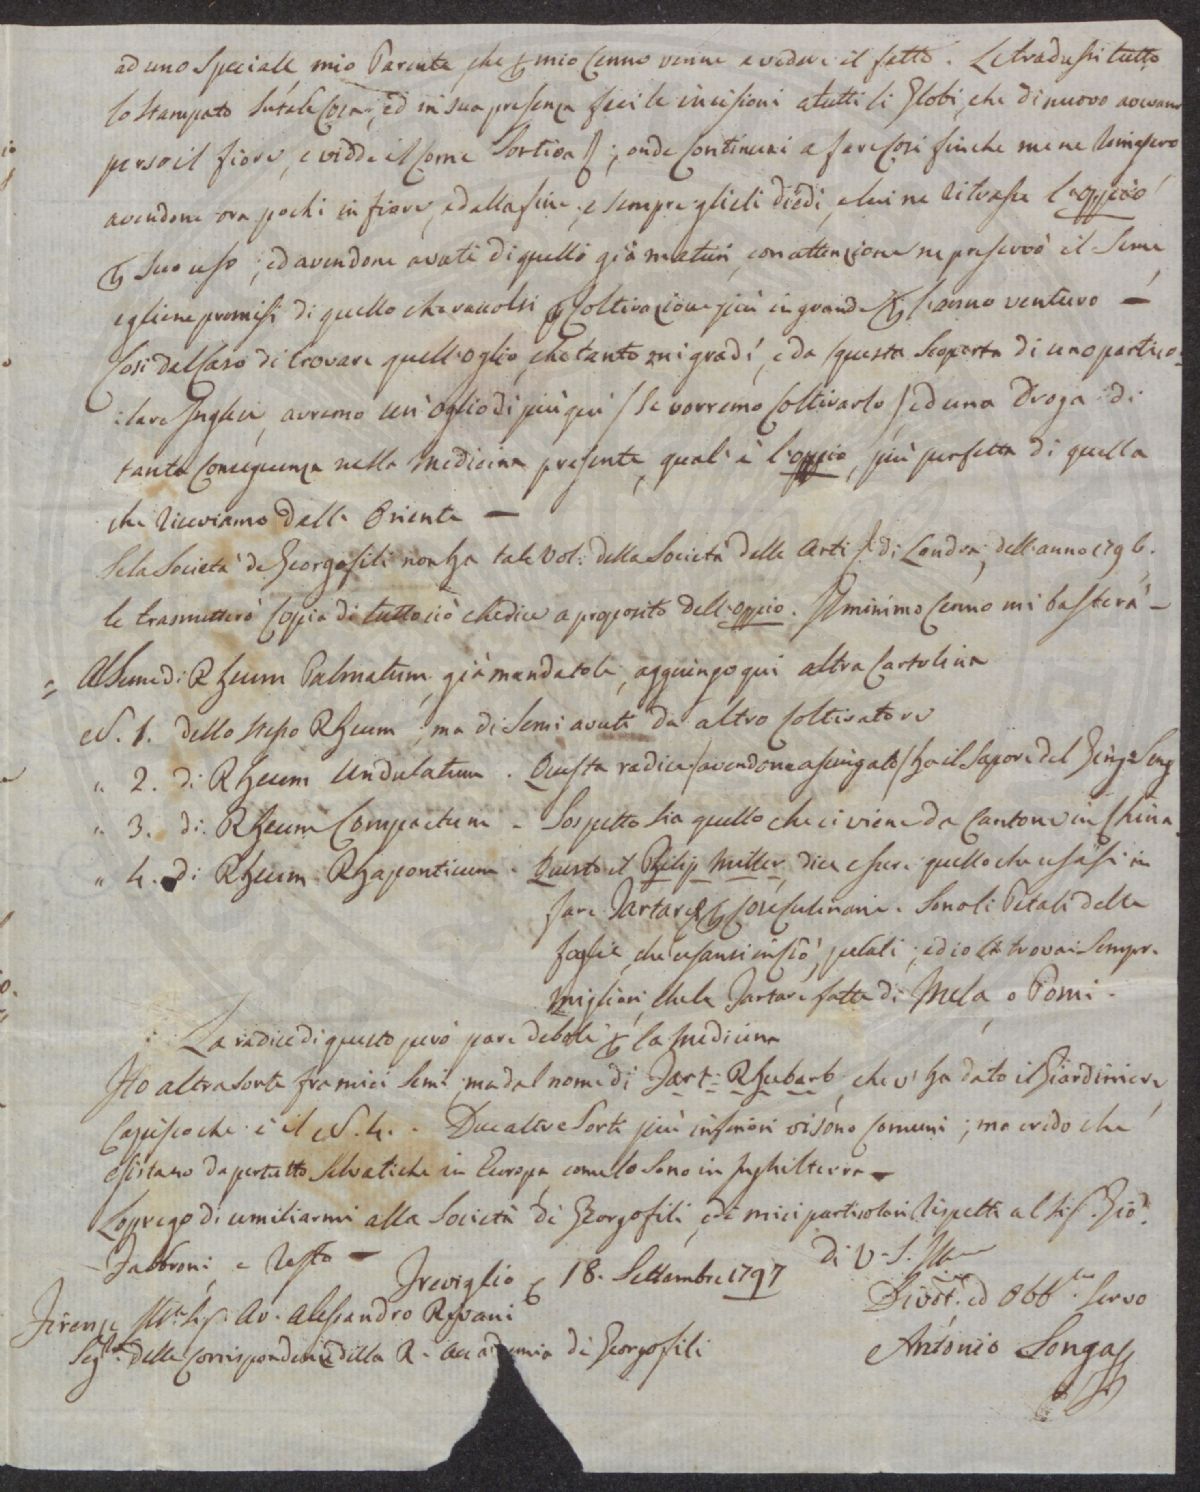 ad uno Speciale mio Parente che p mio Cenno venne a vedere il fatto. Le tradussi tutto
lo Stampato Su tale Cosa, ed in sua presenza feci le incisioni a tutti li Globi, che di nuovo avevano
perso il fiore, e vidde il Come Sortiva; onde Continuai a fare Cosi finche me ne rimasero
avendone ora pochi in fiore, ed alla fine, e Sempre glieli diedi, e lui ne ritrasse l'oppio
p Suo uso; ed avendone avuti di quelli già maturi, con attenzione ne preservò il Seme
e gliene promisi di quello che raccolsi p Coltivazione più in grande p l'anno venturo —
Cosi dal Caso di trovare quell'oglio, che tanto mi gradì, e da questa Scoperta di uno partico-
:lare Inglese, avremo un'oglio di più qui / Se vorremo Coltivarlo / ed una Droga di
tanta Conseguenza nella Medicina presente, qual'è l'oppio, più perfetta di quella
che riceviamo dall'Oriente —
Se la Società de Georgofili non ha tale Vol: della Società delle Arti di Londra, dell'anno 1796.
le trasmetterò Copia di tutto ciò che dice a proposito dell'oppio. Il minimo Cenno mi basterà –
= Al Seme di Rheum Palmatum, già mandatole, aggiungo qui altra Cartolina
N. 1. dello stesso Rheum, ma di Semi avuti da altro Coltivatore
" 2. di Rheum Undulatum. Questa radice / avendone asciugato / ha il Sapore del Ging=Seng
" 3. di Rheum Compactum – Sospetto sia quello che ci viene da Canton in China.
" 4. di Rheum Rhaponticum. Questo il Philip Miller, dice essere quello che usasi in
fare Tartare p Cose Culinarie. Sono li Petali delle
foglie, che usansi in ciò, pelati; ed io le trovai Sempre
migliori, che le Tartare fatte di Mela, o Pomi.
La radice di questo però pare debole p la Medicina
Ho altra Sorte fra miei Semi ma del nome di Tart: Rhubarb, che v'ha dato il Giardiniere,
Capisco che è il N. 4. – Due altre Sorti più inferiori vi sono Comuni; ma credo che
esistano da pertutto Selvatiche in Europa come lo Sono in Inghilterra —
Lo prego di umiliarmi alla Società di Georgofili, ed i miei particolari rispetti al Sig. Gio:
Fabbroni, e resto —
Di V. S. Ill
Treviglio p 18. Settembre 1797
Divot. ed Obb. Servo
Firenze Sig. Av. Alessandro Rivani
Seg. delle Corrispondenze della R. Accademia di Georgofili
Antonio Songa